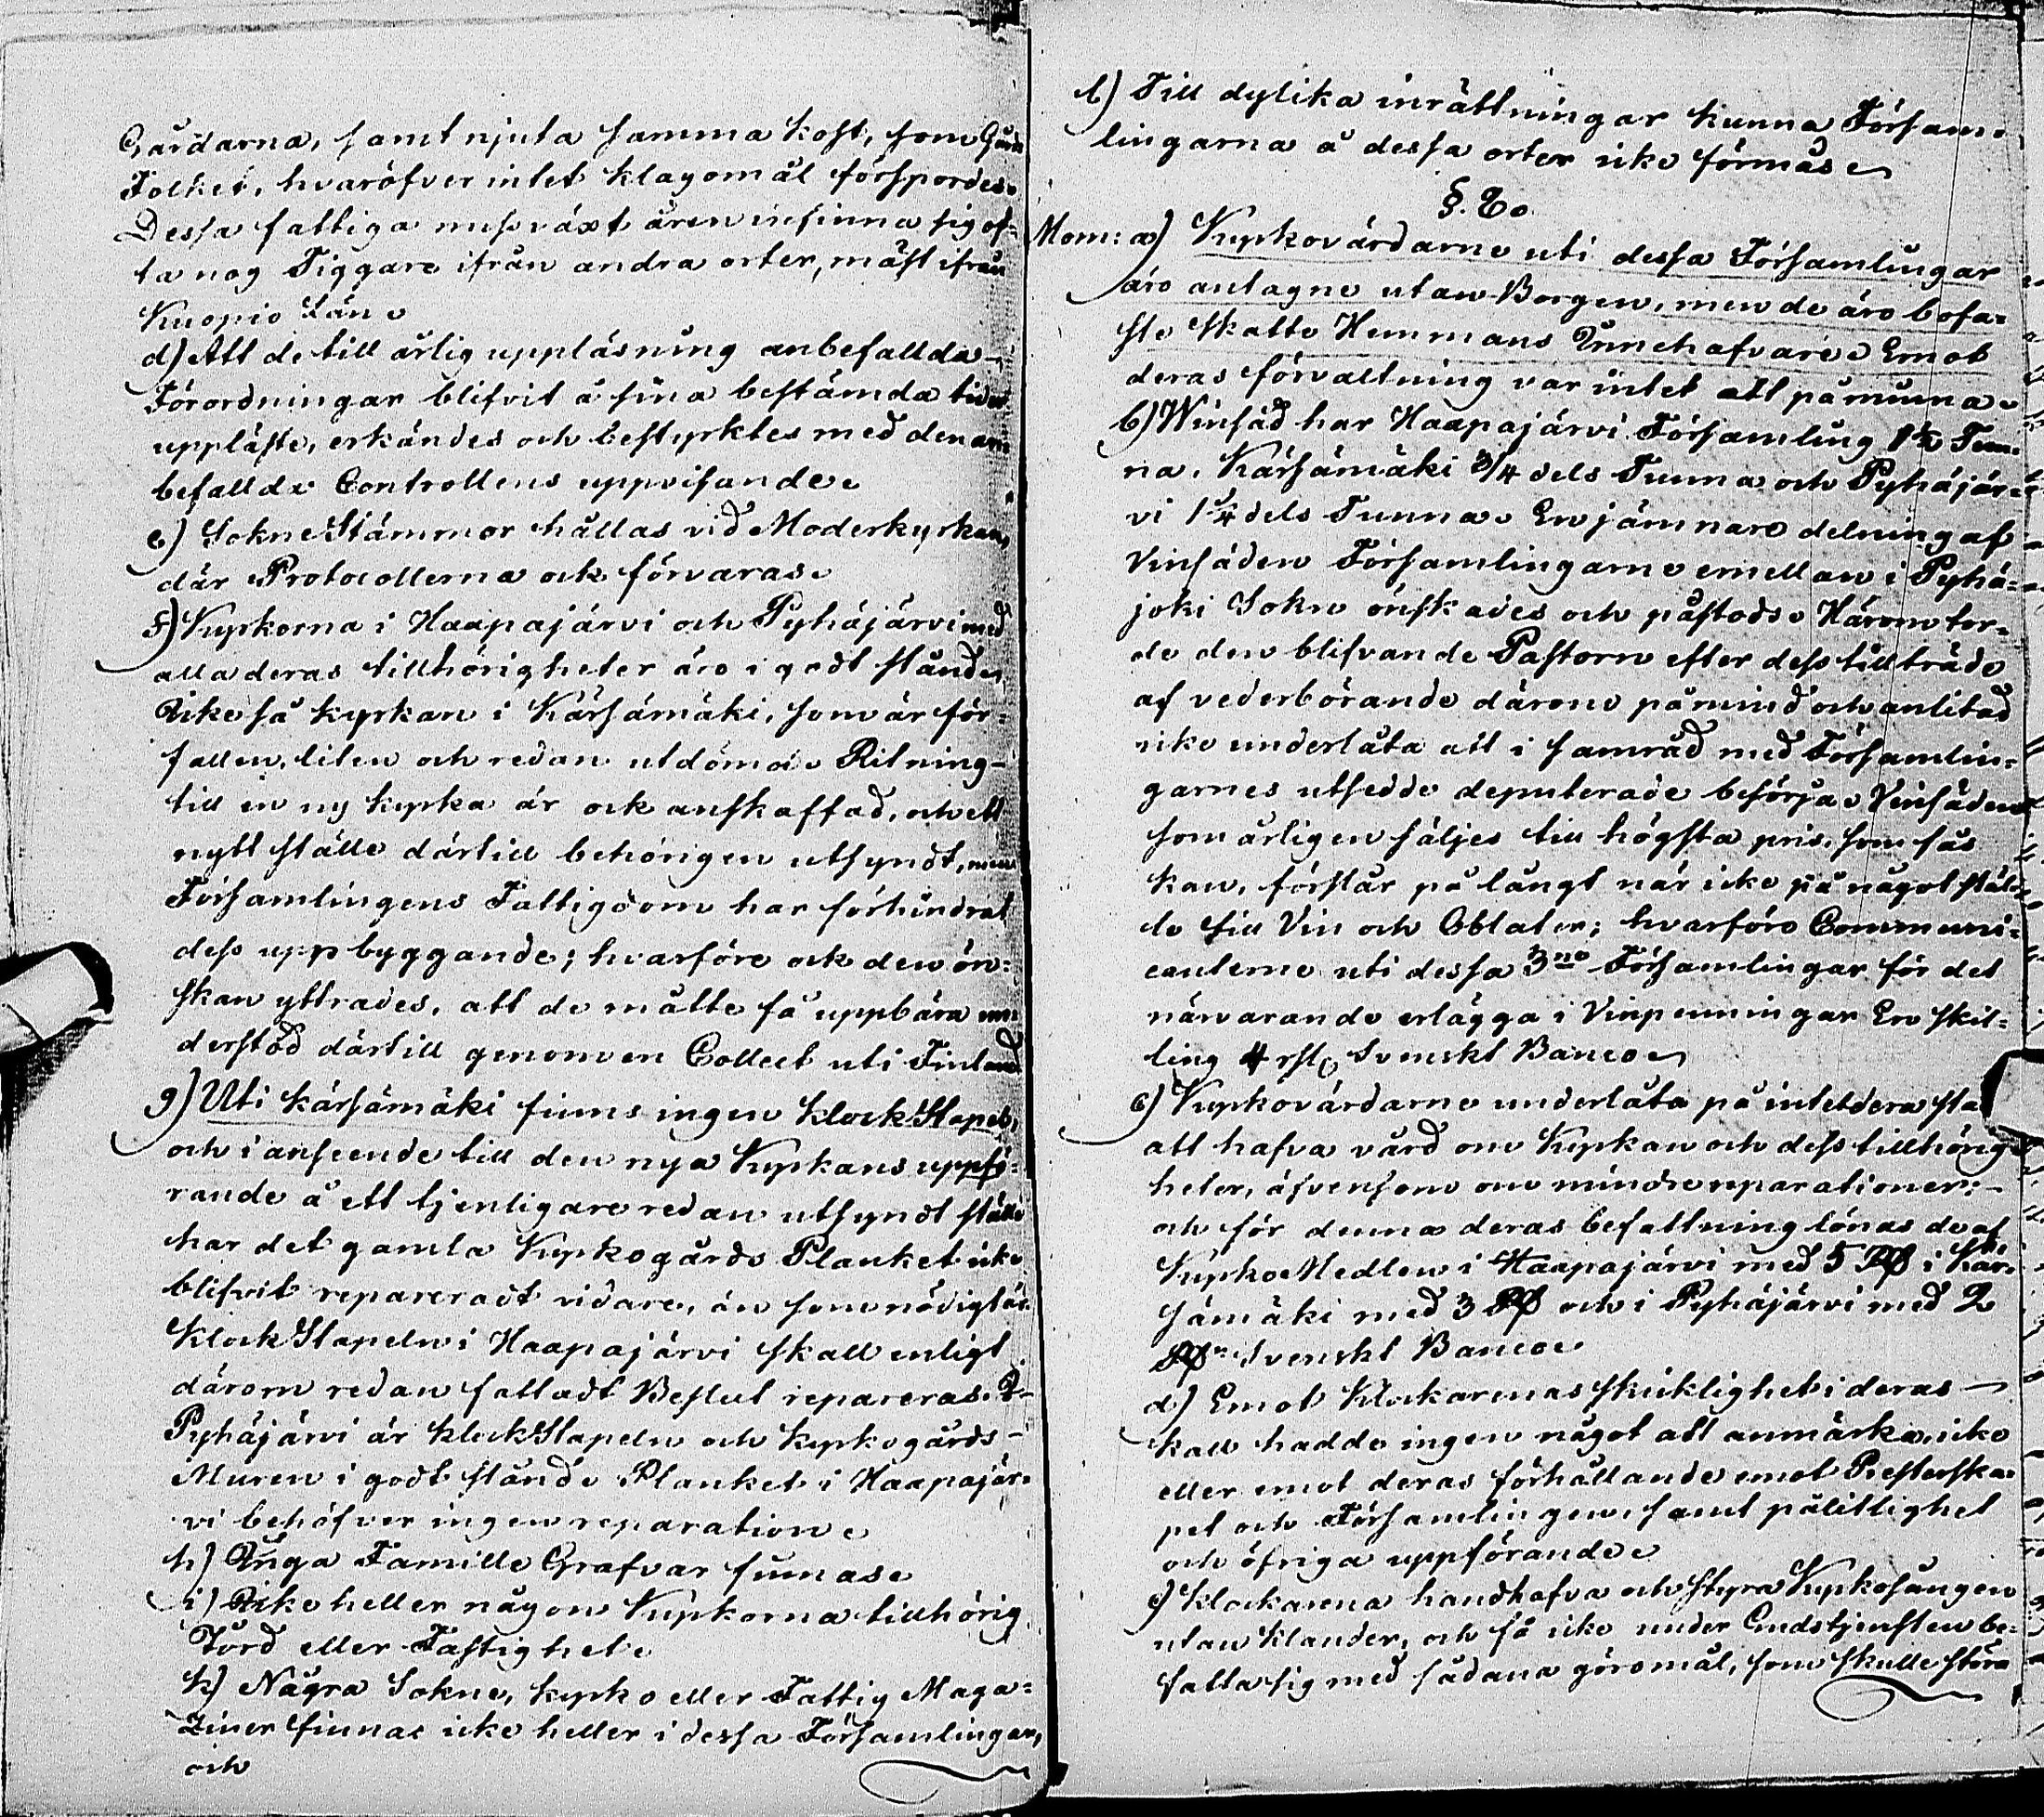 Gårdarna, samt njuta samma kost, som Gårds
Folket, hvaröfver intet klagomål förspordes.
Dessa fattiga missväxt åren infinna sig of-
ta nog Tiggare ifrån andra orter, mäst ifrån
Kuopio Län.
d) Att de till årlig uppläsning anbefallda
Förordningar blifvit å sina bestämda tider
uppläste, erkändes och bestyrktes med den an-
befallde Controllens uppvisande.
e) SokneStämmor hållas vid Moderkyrkan,
där Protocollerna ock förvaras.
f) Kyrkorna i Haapajärvi och Pyhäjärvi med
alla deras tillhörigheter äro i godt stånd.
Icke så kyrkan i Kärsämäki, som är för-
fallen, liten och redan utdömd. Ritning
till en ny kyrka är ock anskaffad, och ett
nytt ställe därtill behörigen utsyndt, men
Församlingens Fattigdom har förhindrat
dess uppbyggande; hvarföre ock den ön-
skan yttrades, att de måtte få uppbära un-
derstöd därtill genom en Collect uti Finland
g) Uti Kärsämäki finns ingen KlockStapel,
och i anseende till den nya Kyrkans uppfö-
rande å ett tjenligare redan utsyndt ställe
har det gamla Kyrkogårds Planket icke
blifvit repareradt vidare, än som nödigt är.
KlockStapeln i Haapajärvi skall enligt
därom redan fattadt Beslut repareras. I
Pyhäjärvi är KlockStapeln och Kyrkogårds-
Muren i godt stånd. Planket i Haapajär-
vi behöfver ingen reparation.
h) Inga Famille Grafvar finnas.
i) Icke heller någon Kyrkorna tillhörig
Jord eller Fastighet.
k) Några Sokne, kyrko eller Fattig Maga-
ziner finnas icke heller i dessa Församlingar,
och
l) Till dylika inrättningar kunna Försam-
lingarna å dessa orter icke förmås.
§. 8.
Mom: a) Kyrkovärdarne uti dessa Församlingar
äro antagne utan Borgen, men de äro bofa-
ste Skatte Hemmans Innehafvare. Emot
deras förvaltning var intet att påminna.
b) Winsäd har Haapajärvi Församling 1 1/2 Tun-
na, Kärsämäki 3/4 dels Tunna och Pyhäjär-
vi 1 1/4 dels Tunna. En jämnare delning af
Vinsäden Församlingarne emellan i Pyhä-
joki Sokn önskades och påstods. Härom tor-
de den blifvande Pastorn efter dess tillträde
af vederbörande därom påmind och anlitad
icke underlåta att i samråd med Församlin-
garnes utsedde deputerade besörja. Vinsäden
som årligen säljes till högsta pris, som fås
kan, förslår på långt när icke på något stäl-
le till Vin och Oblater; hvarföre Communi-
canterne uti dessa 3ne Församlingar för det
närvarande erlägga i Vinpenningar En skil-
ling 4 rst. Svenskt Banco.
c) Kyrkovärdarne underlåta på intetdera stä
att hafva vård om Kyrkan och dess tillhörig-
heter, äfvensom om mindre reparationer;
och för denna deras befattning lönas de af
KyrkoMedlen i Haapajärvi med 5 Rd i Kär-
sämäki med 3 Rd och i Pyhäjärvi med 2
Rd Svenskt Banco.
d) Emot Klockarenas skicklighet i deras
kall hadde ingen något att anmärka, icke
eller emot deras förhållande emot Presterska-
pet och Församlingen, samt pålitlighet
och öfriga uppförande.
e) Klockarena handhafva och styra Kyrkosången
utan klander, och få icke under Gudstjensten be-
fatta sig med sådana göromål, som skulle störa